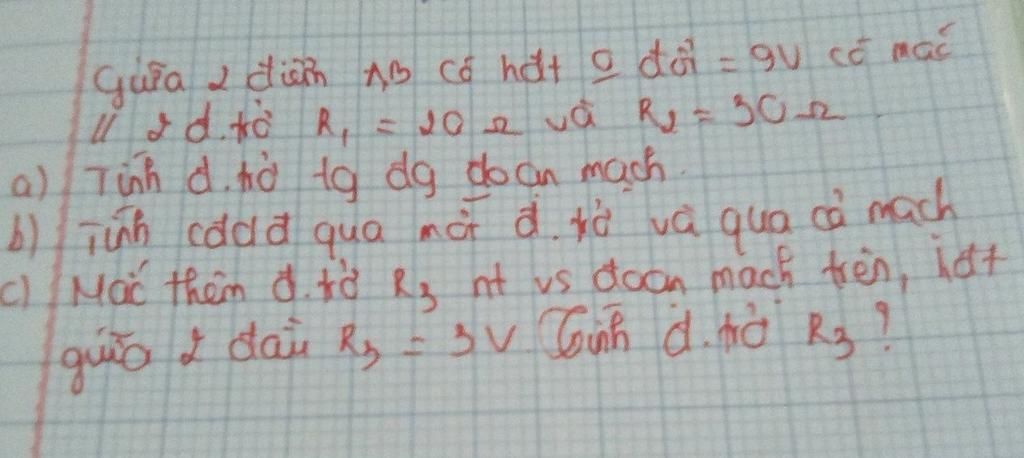 Giữa 2 điểm AB có hđt 0 đổi = 9V có mắc
// 2 đ.trở R₁ = 20 Ω và R₂ = 30 Ω
a) Tính đ.trở tg đg đoạn mạch.
b) Tính cdđđ qua mỗi đ.trở và qua cả mạch
c) Mắc thêm đ.trở R₃ nt vs đoạn mạch trên, hđt
giữa 2 đầu R₃ = 3V. Tính đ.trở R₃?